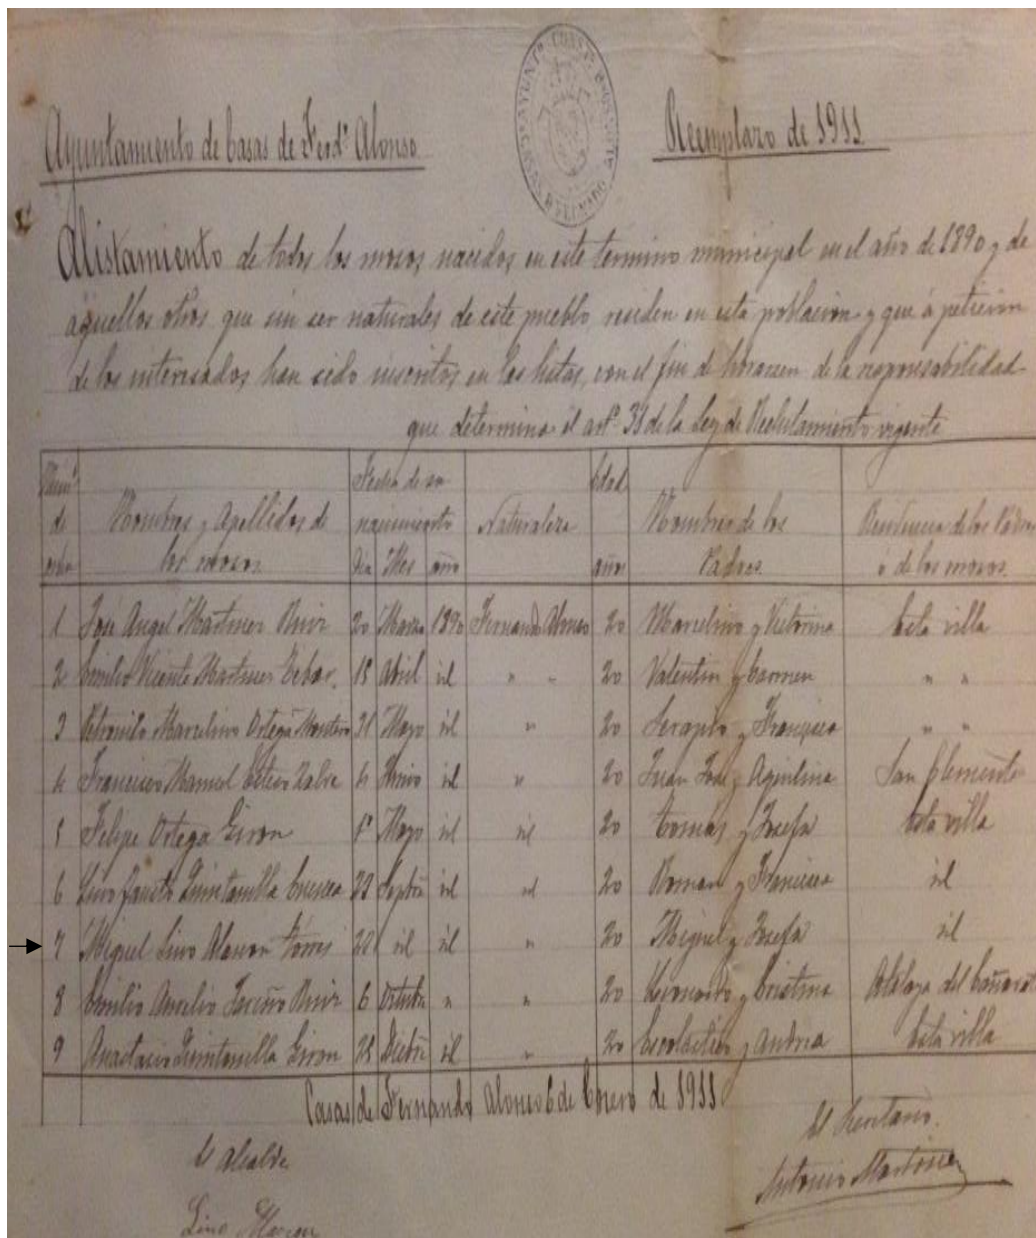 Ayuntamiento de Casas de Ferdº Alonso
Reemplazo de 1911
Alistamiento de todos los mozos nacidos en este termino municipal en el año de 1890 y de
aquellos otros que sin ser naturales de este pueblo, residen en esta poblacion y que á peticion
de los interesados han sido inscritos en las listas, con el fin de de la responsabilidad
que determina el artº 31 de la Ley de Reclutamiento vigente
Numº de orden Nombres y Apellidos de los mozos Fecha de su nacimiento Dia Mes año Naturaleza Edad años Nombres de los Padres Residencia de los Padres ó de los mozos
1 José Angel Martinez Ruiz 20 Marzo 1890 Fernando Alonso 20 Marcelino y Victorina Esta villa
2 Emilio Vicente Martinez 15 Abril id " " 20 Valentin y Carmen " "
3 Marcelino Ortega Montero 31 Mayo id " 20 Serapio y Francisca " "
4 Francisco Manuel 4 id " 20 Juan José y Agustina San Clemente
5 Felipe Ortega Giron 1º Mayo id id 20 Tomas y Josefa Esta villa
6 Lino Fausto Quintanilla 23 Septbre id id 20 Roman y Francisca id
7 Miguel Lino Alarcon Torres id id " 20 Miguel y Josefa id
8 Emilio Aurelio Ruiz 6 Octubre " " 20 Leonardo y Cristina Atalaya del Cañavate
9 Anastacio Quintanilla Giron 25 Dicbre id " 20 Escolastico y Andrea Esta villa
Casas de Fernando Alonso 6 de Enero de 1911
El Alcalde
El Secretario.
Antonio Martinez
Lino Alarcon